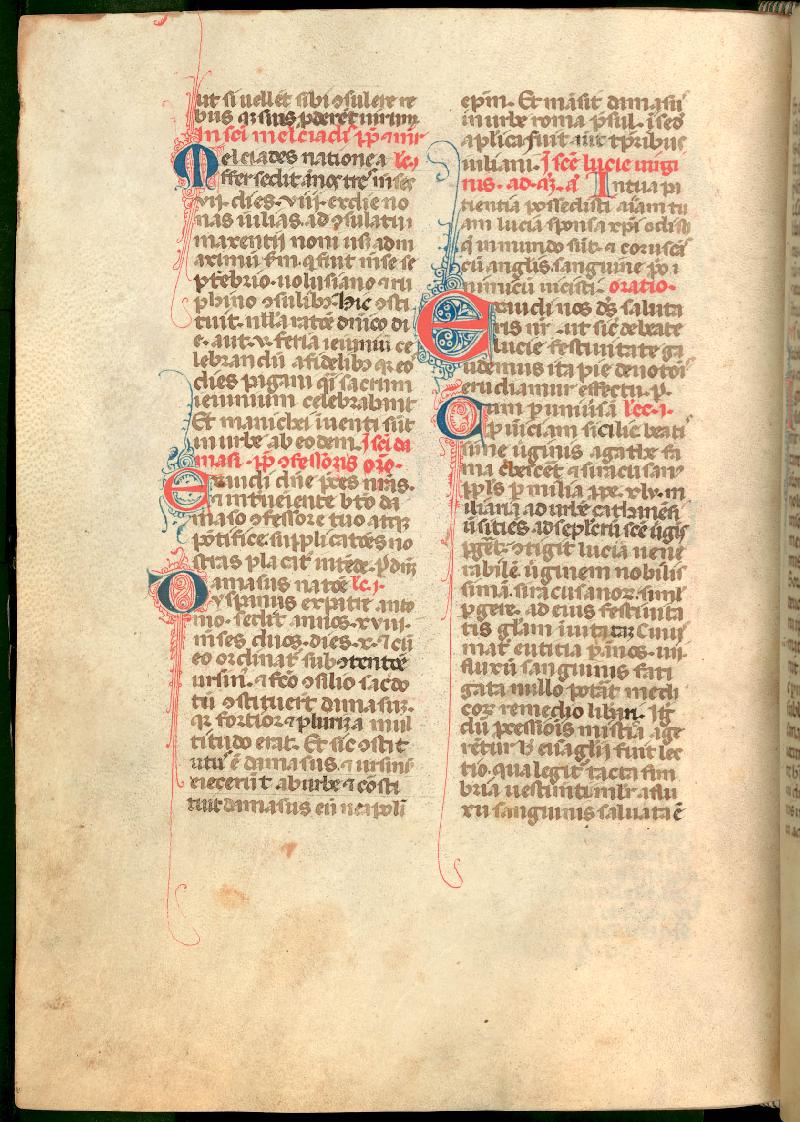 ut si uellet sibi ɔsulere re
bus qr suis pderet
In sci melciadis pp & mr̄
Melciades natione a lc̄.j
ffer sedit ānos tres mēses
vij. dies. viij. ex die no
nas iulias. ad ɔsulatū
maxentij noni usq ad m
aximū
ptēbrio. uolusiano & ru
phino ɔsulibꝰ. hic ɔsti
tuit. nulla ratōe dnico di
e. aut. v. feria ieiuniū ce
lebrandū a fidelibꝰ qr eo
dies pagani qi sacrum
ieiunium celebrabant
Et manichei inuenti sūt
in urbe ab eodem. J sci da
masi. pp ɔfessoris orō.
Exaudi dne pces nrās.
& interueniente bto da
maso ɔfessore tuo atqꝫ
pōtifice. supplicatōes no
stras placatꝰ intēde. p dnꝫ
Damasus natōe lc̄.j.
yspanus ex patre anto
nio. sedit annos. xviij.
mēses duos. dies. x. & cū
eo ordinatꝰ sub ɔtentōe
ursinꝰ. & fcō ɔsilio sacdo
tū ɔstituerūt damasuꝫ.
qr fortior & plurima mul
titudo erat. Et sic ɔstit
utuꝰ ē damasus. & ursinū
eiecerūt ab urbe & cōsti
tuit damasus eū neapoli
epm̄. Et māsit damasus
in urbe roma p̄sul.
aplica fuit aūt tp̄ribus
iuliani. J scē lucie uirgi
nis. ad. aꝫ. a Intua pa
tientia possedisti aīam tu
am lucia sponsa xp̄i odisti
q in mundo sūt. & corusca
cū anglis. sanguine pp̄o i
nimicū uicisti. oratio.
Exaudi nos ds̄ saluta
ris nr̄. ut sic de beate
lucie festiuitate ga
udemus ita pie deuotōis
erudiamur effectu. p.
Cum p uniūsā lec. j.
puīciam sicilie beati
ssime ūginis agathe fa
ma crescet & siracusan
ppls p milia pp̄e. xlv. m
iliaria ad urbē cathinensi
ū sities ad seplcrū scē ūgīs
pgēt. ɔtigit luciā uene
rabilē ūginem nobilis
simā. siracusanoꝝ. simꝉ
pgere. ad eius festiuita
tis glām
matꝰ eutitia p ānos. iiij.
fluxū sanguinis fati
gata nullo potāt medi
coꝝ remedio libari. Igr
dū
retur & euāglij fuit lec
tio. qua legitꝰ tactā fim
bria uestimti mlr a flu
xu sanguinis saluata ē